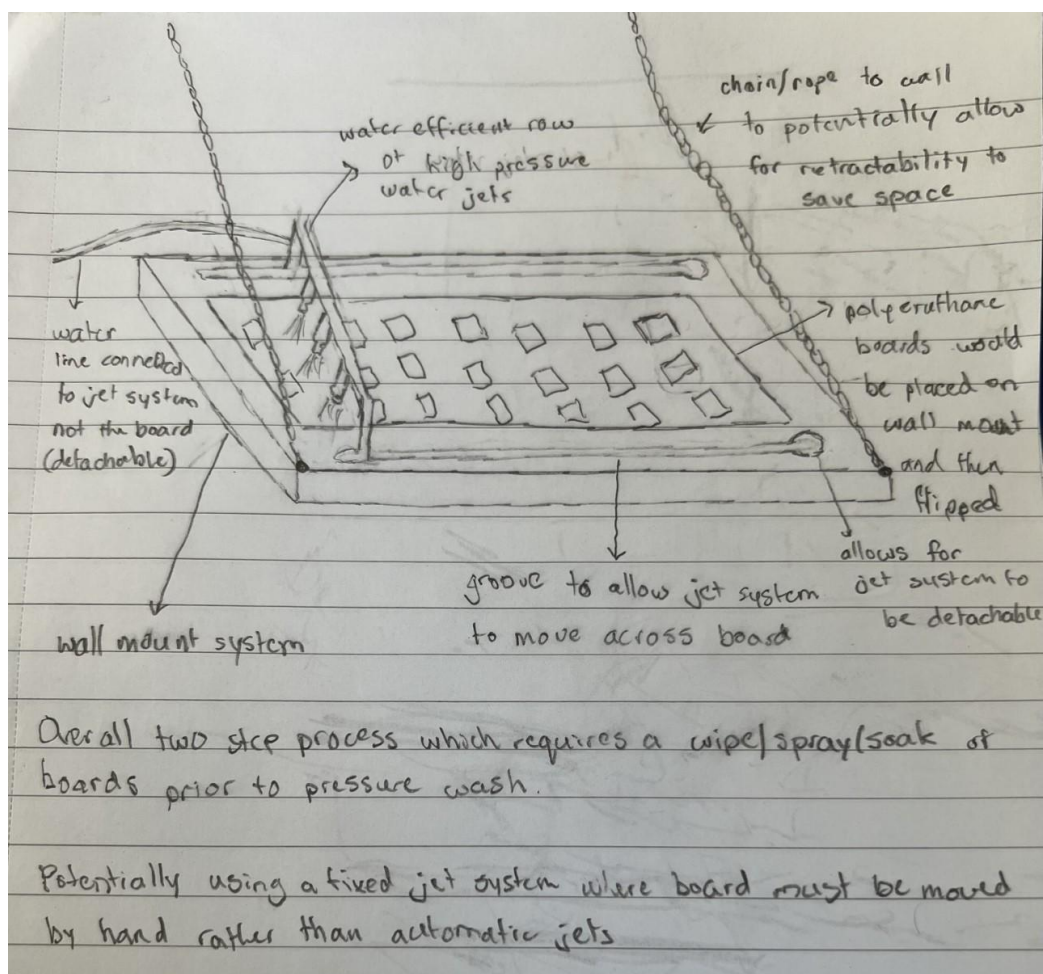 chain/rope to wall
to potentially allow
for retractability to
save space
water efficient row
of high pressure
water jets
water
line connected
to jet system
not the board
(detachable)
polyeruthane
boards would
be placed on
wall mount
and then
flipped
allows for
jet system to
be detachable
groove to allow jet system
to move across board
wall mount system
Overall two step process which requires a wipe/spray/soak of
boards prior to pressure wash.
Potentially using a fixed jet system where board must be moved
by hand rather than automatic jets